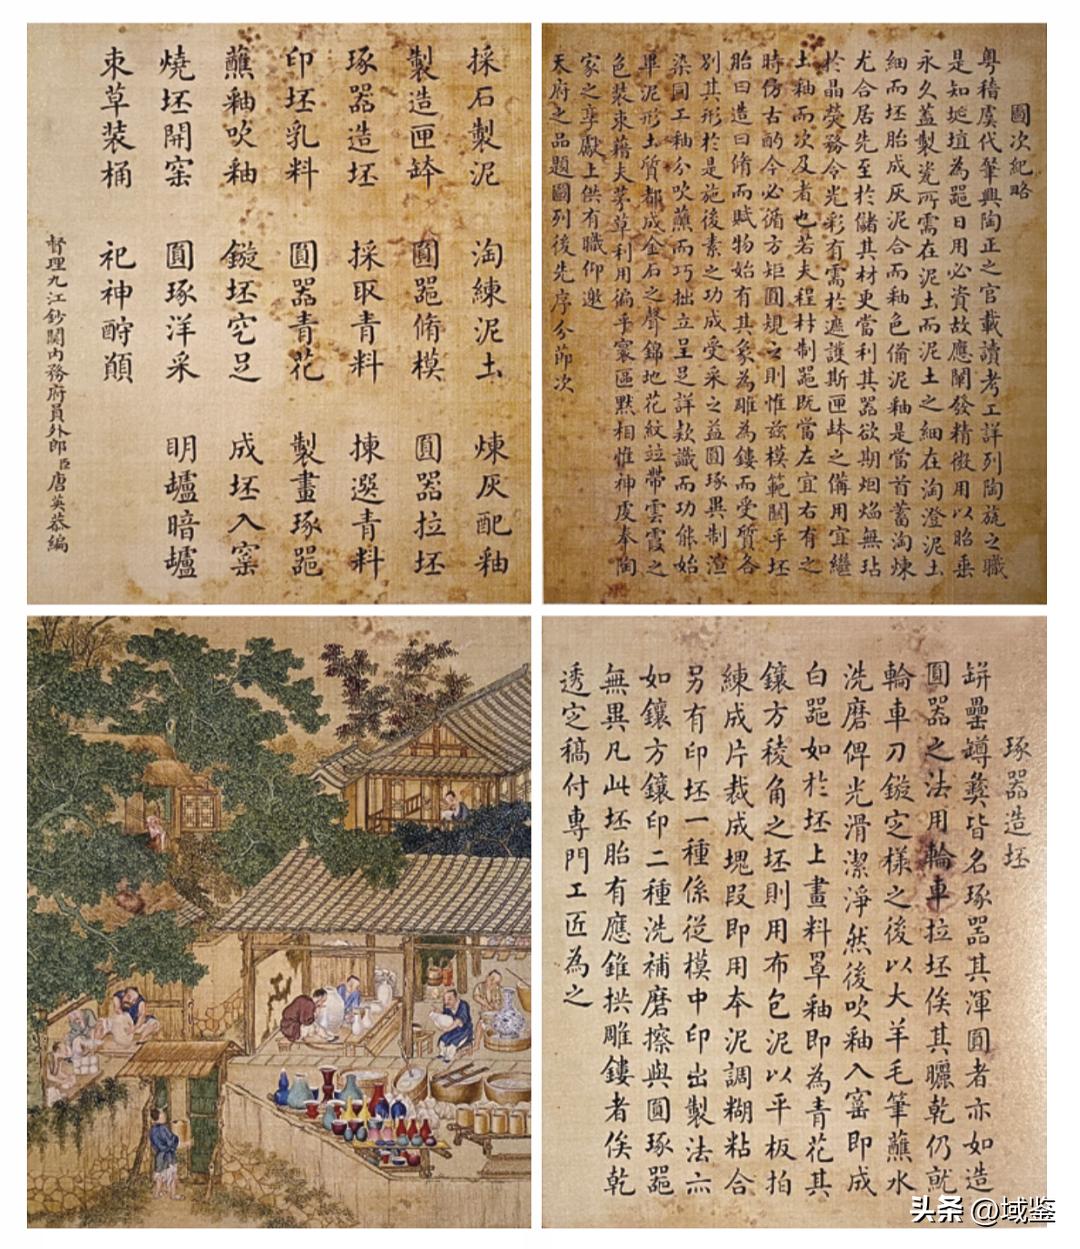 圖次紀略
粵稽虞代肇興陶正之官載讀考工詳列陶旊之職
是知埏埴為器日用必資故應闡發精微用以昭垂
永久蓋製瓷所需在泥土而泥土之細在淘澄泥土
細而坯胎成灰泥合而釉色備泥釉是當首蓄淘煉
尤合居先至於儲其材更當利其器欲期烟焰無玷
於晶熒務令光彩有需於遮護斯匣缽之備用宜繼
土釉而次及者也若夫程材制器既當左宜右有之
時仿古酌今必循方矩圓規之則惟茲模範關乎坯
胎曰造曰脩而賦物始有其象為雕為鏤而受質各
別其形於是施後素之功成受采之益圓琢異制渲
染同工釉分吹蘸而巧拙立呈足詳款識而功能始
畢泥形土質都成金石之聲錦地花紋竝帶雲霞之
色裝束藉夫茅草利用徧乎寰區黙相惟神虔奉陶
家之享獻上供有職仰邀
天府之品題圖列後先序分節次
採石製泥 淘練泥土 煉灰配釉
製造匣缽 圓器脩模 圓器拉坯
琢器造坯 採取青料 揀選青料
印坯乳料 圓器青花 製畫琢器
蘸釉吹釉 鏇坯穵足 成坯入窯
燒坯開窯 圓琢洋采 明壚暗壚
束草裝桶 祀神酧願
督理九江鈔關內務府員外郎臣唐英恭編
琢器造坯
缾罍罇彝皆名琢器其渾圓者亦如造
圓器之法用輪車拉坯俟其曬乾仍就
輪車刀鏇定樣之後以大羊毛筆蘸水
洗磨俾光滑潔淨然後吹釉入窰即成
白器如於坯上畫料罩釉即為青花其
鑲方稜角之坯則用布包泥以平板拍
練成片裁成塊段即用本泥調糊粘合
另有印坯一種係從模中印出製法亦
如鑲方鑲印二種洗補磨擦與圓琢器
無異凡此坯胎有應錐拱雕鏤者俟乾
透定稿付專門工匠為之
头条 @域鉴